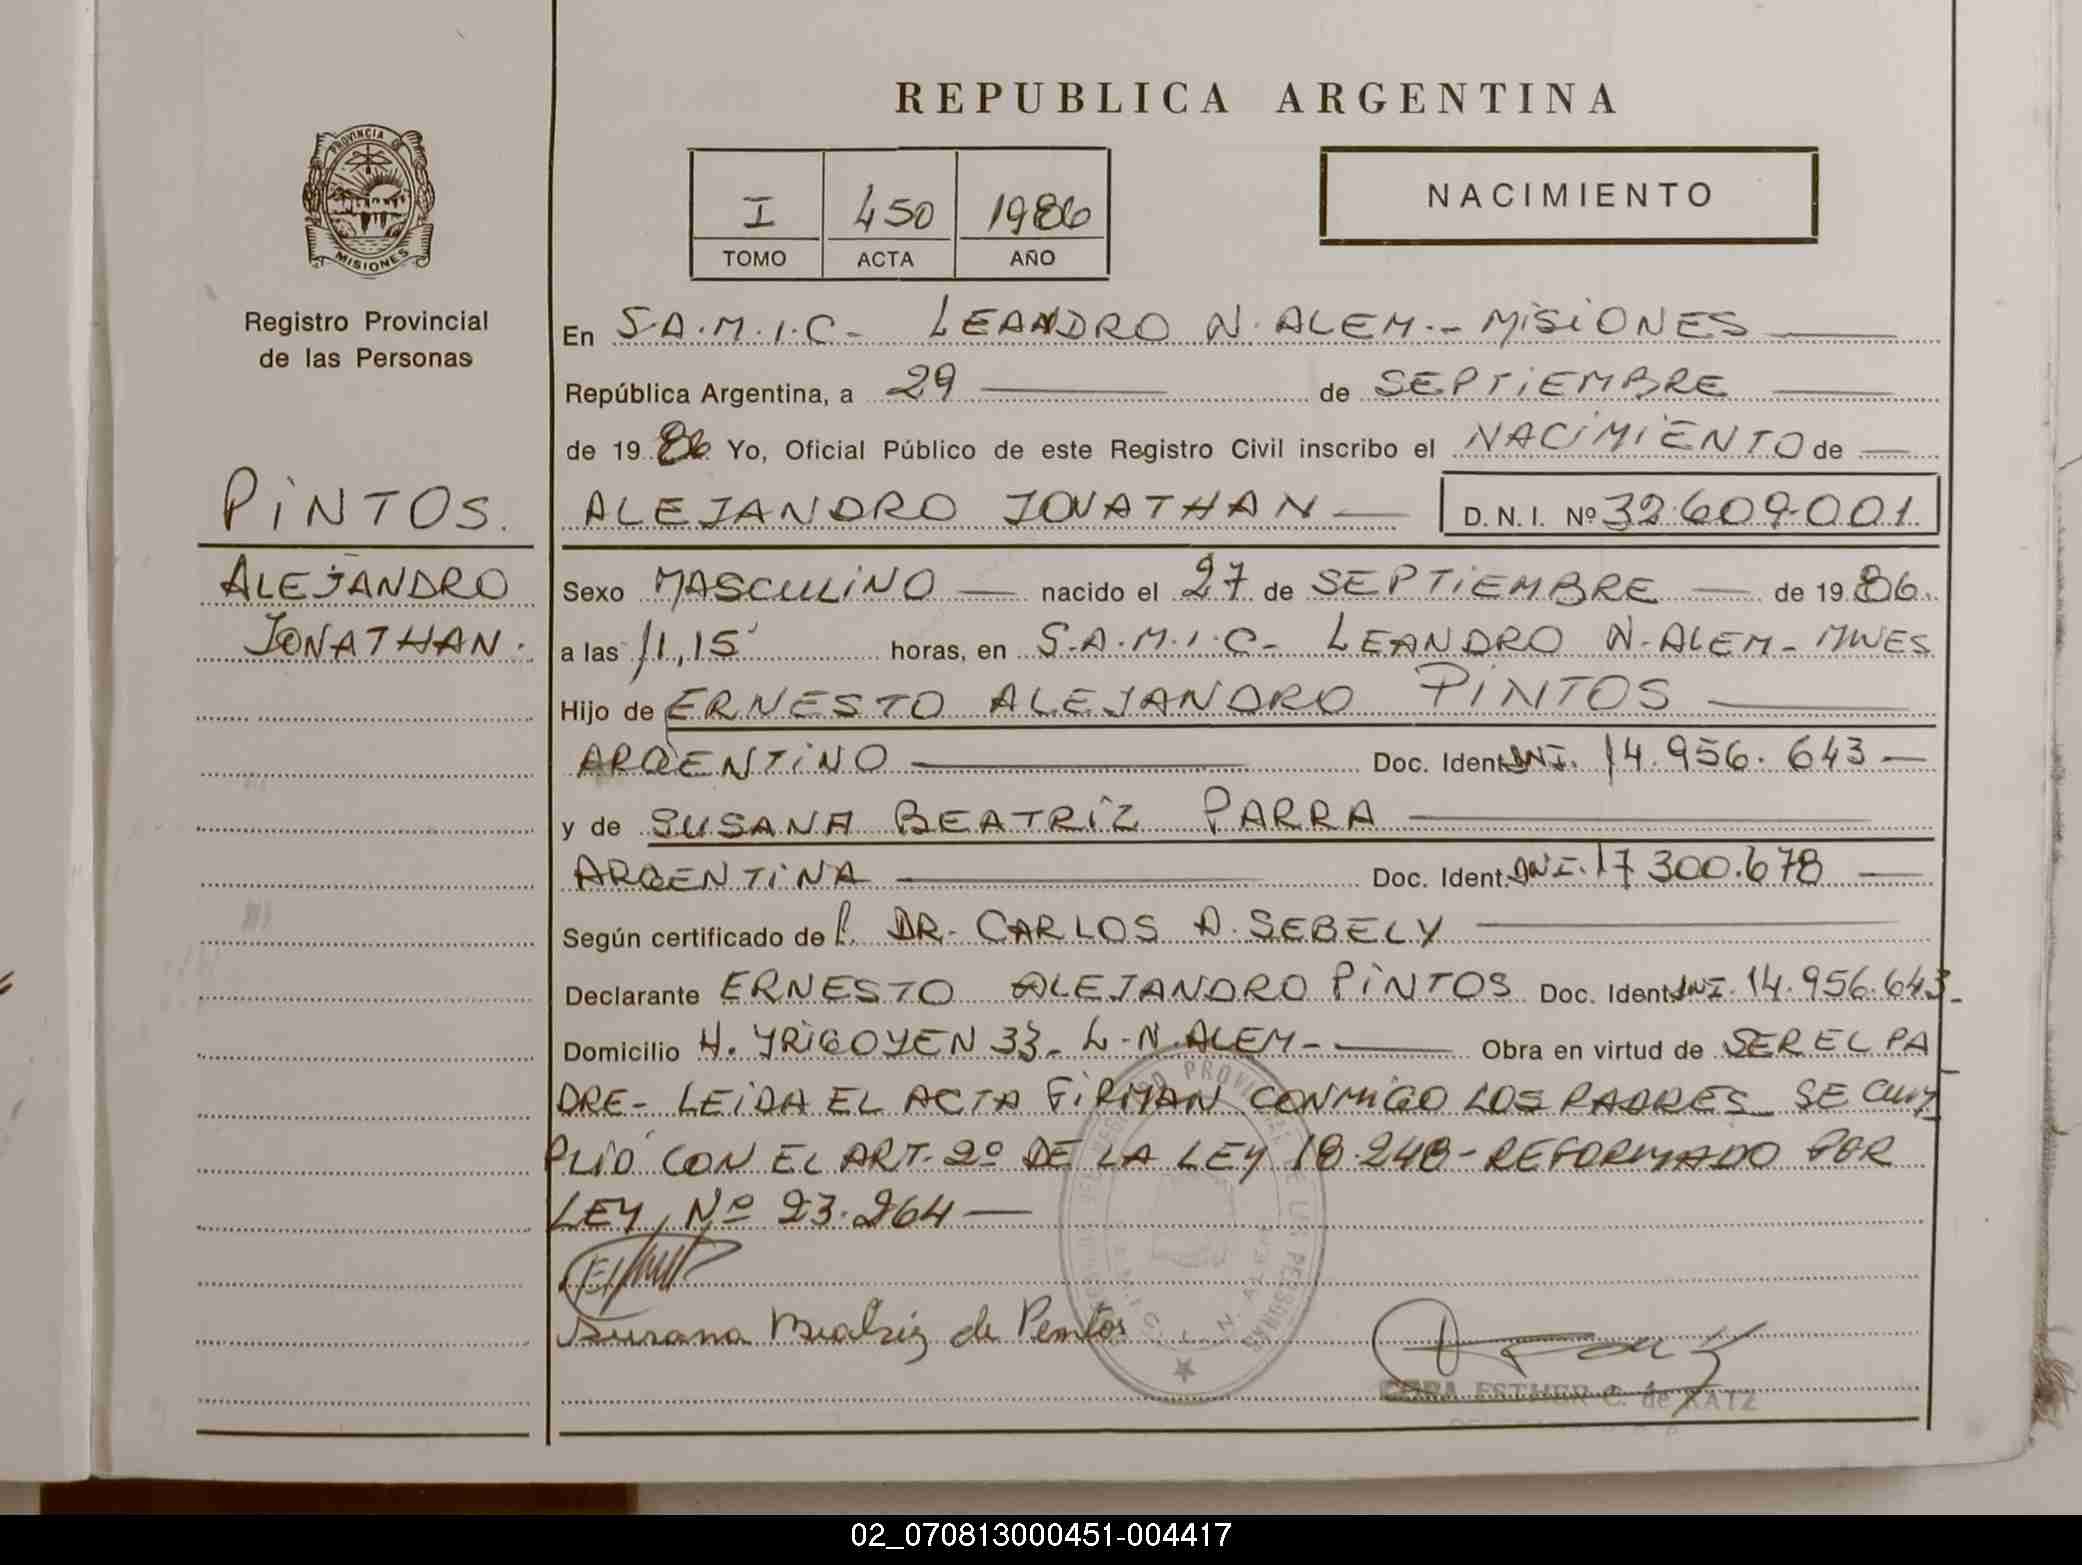 REPUBLICA ARGENTINA
PROVINCIA DE
MISIONES
Registro Provincial
de las Personas
I 450 1986
TOMO ACTA AÑO
NACIMIENTO
En S.A.M.I.C- LEANDRO N. ALEM.- MISIONES
República Argentina, a 29 de SEPTIEMBRE
de 1986 Yo, Oficial Público de este Registro Civil inscribo el NACIMIENTO de
PINTOS.
ALEJANDRO JONATHAN D. N. I. Nº 32.609.001.
ALEJANDRO
JONATHAN.
Sexo MASCULINO nacido el 27 de SEPTIEMBRE de 1986.
a las 11,15 horas, en S.A.M.I.C- LEANDRO N. ALEM- MNES
Hijo de ERNESTO ALEJANDRO PINTOS
ARGENTINO Doc. Ident. DNI. 14.956.643
y de SUSANA BEATRIZ PARRA
ARGENTINA Doc. Ident. DNI. 17.300.678
Según certificado de P. DR. CARLOS A. SEBELY
Declarante ERNESTO ALEJANDRO PINTOS Doc. Ident. DNI. 14.956.643-
Domicilio H. YRIGOYEN 33- L.N. ALEM- Obra en virtud de SER EL PA
DRE- LEIDA EL ACTA FIRMAN CONMIGO LOS PADRES_ SE CUM
PLIO CON EL ART. 2º DE LA LEY 18.248- REFORMADO POR
LEY, Nº 23.264
Susana Beatriz de Pintos
ESTHER C. de KATZ
02_070813000451-004417